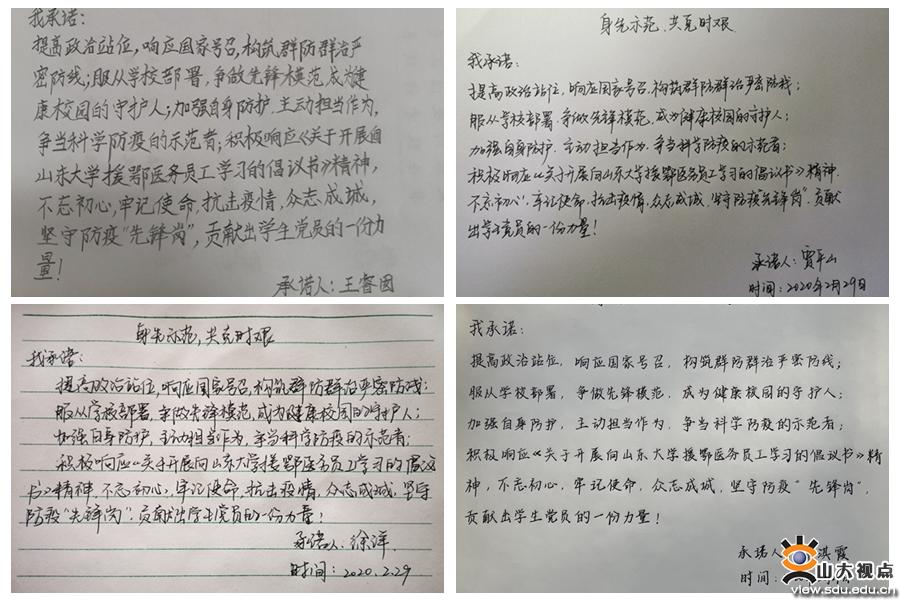 我承诺:
提高政治站位,响应国家号召,构筑群防群治严
密防线;服从学校部署,争做先锋模范,成为健
康校园的守护人;加强自身防护,主动担当作为,
争当科学防疫的示范者;积极响应《关于开展向
山东大学援鄂医务员工学习的倡议书》精神,
不忘初心,牢记使命,抗击疫情,众志成城,
坚守防疫“先锋岗”,贡献出学生党员的一份力
量!
承诺人:王睿
身先示范,共克时艰
我承诺:
提高政治站位,响应国家号召,构筑群防群治严密防线;
服从学校部署,争做先锋模范,成为健康校园的守护人;
加强自身防护,主动担当作为,争当科学防疫的示范者;
积极响应《关于开展向山东大学援鄂医务员工学习的倡议书》精神,
不忘初心,牢记使命,抗击疫情,众志成城,坚守防疫“先锋岗”,贡献
出学生党员的一份力量!
承诺人:贾平山
时间:2020年2月29日
身先示范,共克时艰
我承诺:
提高政治站位,响应国家号召,构筑群防群治严密防线;
服从学校部署,争做先锋模范,成为健康校园的守护人;
加强自身防护,主动担当作为,争当科学防疫的示范者;
积极响应《关于开展向山东大学援鄂医务员工学习的倡议
书》精神,不忘初心,牢记使命,抗击疫情,众志成城,坚守
防疫“先锋岗”,贡献出学生党员的一份力量!
承诺人:徐洋
时间:2020.2.29
我承诺:
提高政治站位,响应国家号召,构筑群防群治严密防线;
服从学校部署,争做先锋模范,成为健康校园的守护人;
加强自身防护,主动担当作为,争当科学防疫的示范者;
积极响应《关于开展向山东大学援鄂医务员工学习的倡议书》精
神,不忘初心,牢记使命,众志成城,坚守防疫“先锋岗”,
贡献出学生党员的一份力量!
承诺人 淇霞
时间:
山大视点
view.sdu.edu.cn